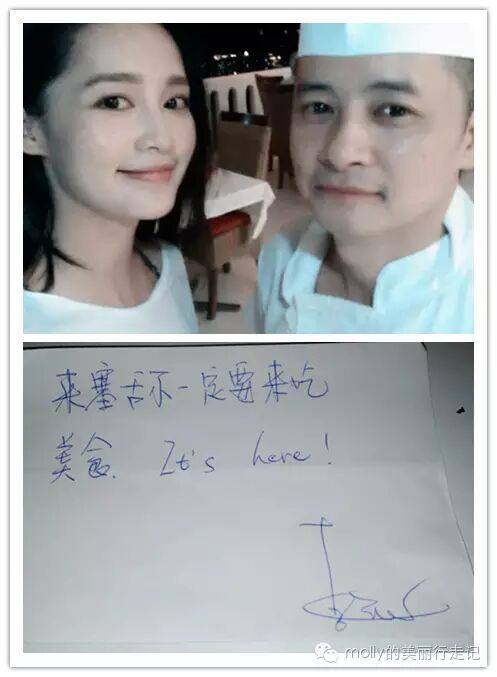 来塞舌尔一定要来吃
美食. It's here!
molly的美丽行走记